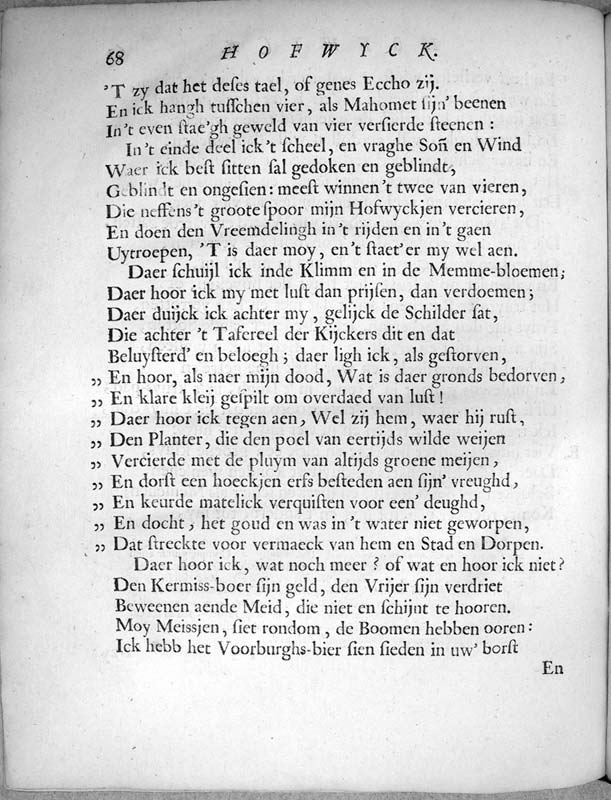 68 HOFWYCK.
'T zy dat het deſes tael, of genes Eccho zij.
En ick hangh tuſſchen vier, als Mahomet ſijn' beenen
In't even ſtae'gh geweld van vier verſierde ſteenen :
In't einde deel ick't ſcheel, en vraghe Soñ en Wind
Waer ick beſt ſitten ſal gedoken en geblindt,
Geblindt en ongeſien: meeſt winnen't twee van vieren,
Die neffens't groote ſpoor mijn Hofwyckjen vercieren,
En doen den Vreemdelingh in't rijden en in't gaen
Uytroepen, 'T is daer moy, en't ſtaet'er my wel aen.
Daer ſchuijl ick inde Klimm en in de Memme-bloemen;
Daer hoor ick my met luſt dan prijſen, dan verdoemen;
Daer duijck ick achter my, gelijck de Schilder ſat,
Die achter 't Tafereel der Kijckers dit en dat
Beluyſterd' en beloegh; daer ligh ick, als geſtorven,
„ En hoor, als naer mijn dood, Wat is daer gronds bedorven,
„ En klare kleij geſpilt om overdaed van luſt!
„ Daer hoor ick tegen aen, Wel zij hem, waer hij ruſt,
„ Den Planter, die den poel van eertijds wilde weijen
„ Vercierde met de pluym van altijds groene meijen,
„ En dorſt een hoeckjen erfs beſteden aen ſijn' vreughd,
„ En keurde matelick verquiſten voor een' deughd,
„ En docht, het goud en was in't water niet geworpen,
„ Dat ſtreckte voor vermaeck van hem en Stad en Dorpen.
Daer hoor ick, wat noch meer ? of wat en hoor ick niet?
Den Kermiss-boer ſijn geld, den Vrijer ſijn verdriet
Beweenen aende Meid, die niet en ſchijnt te hooren.
Moy Meissjen, ſiet rondom, de Boomen hebben ooren:
Ick hebb het Voorburghs-bier ſien ſieden in uw' borſt
En